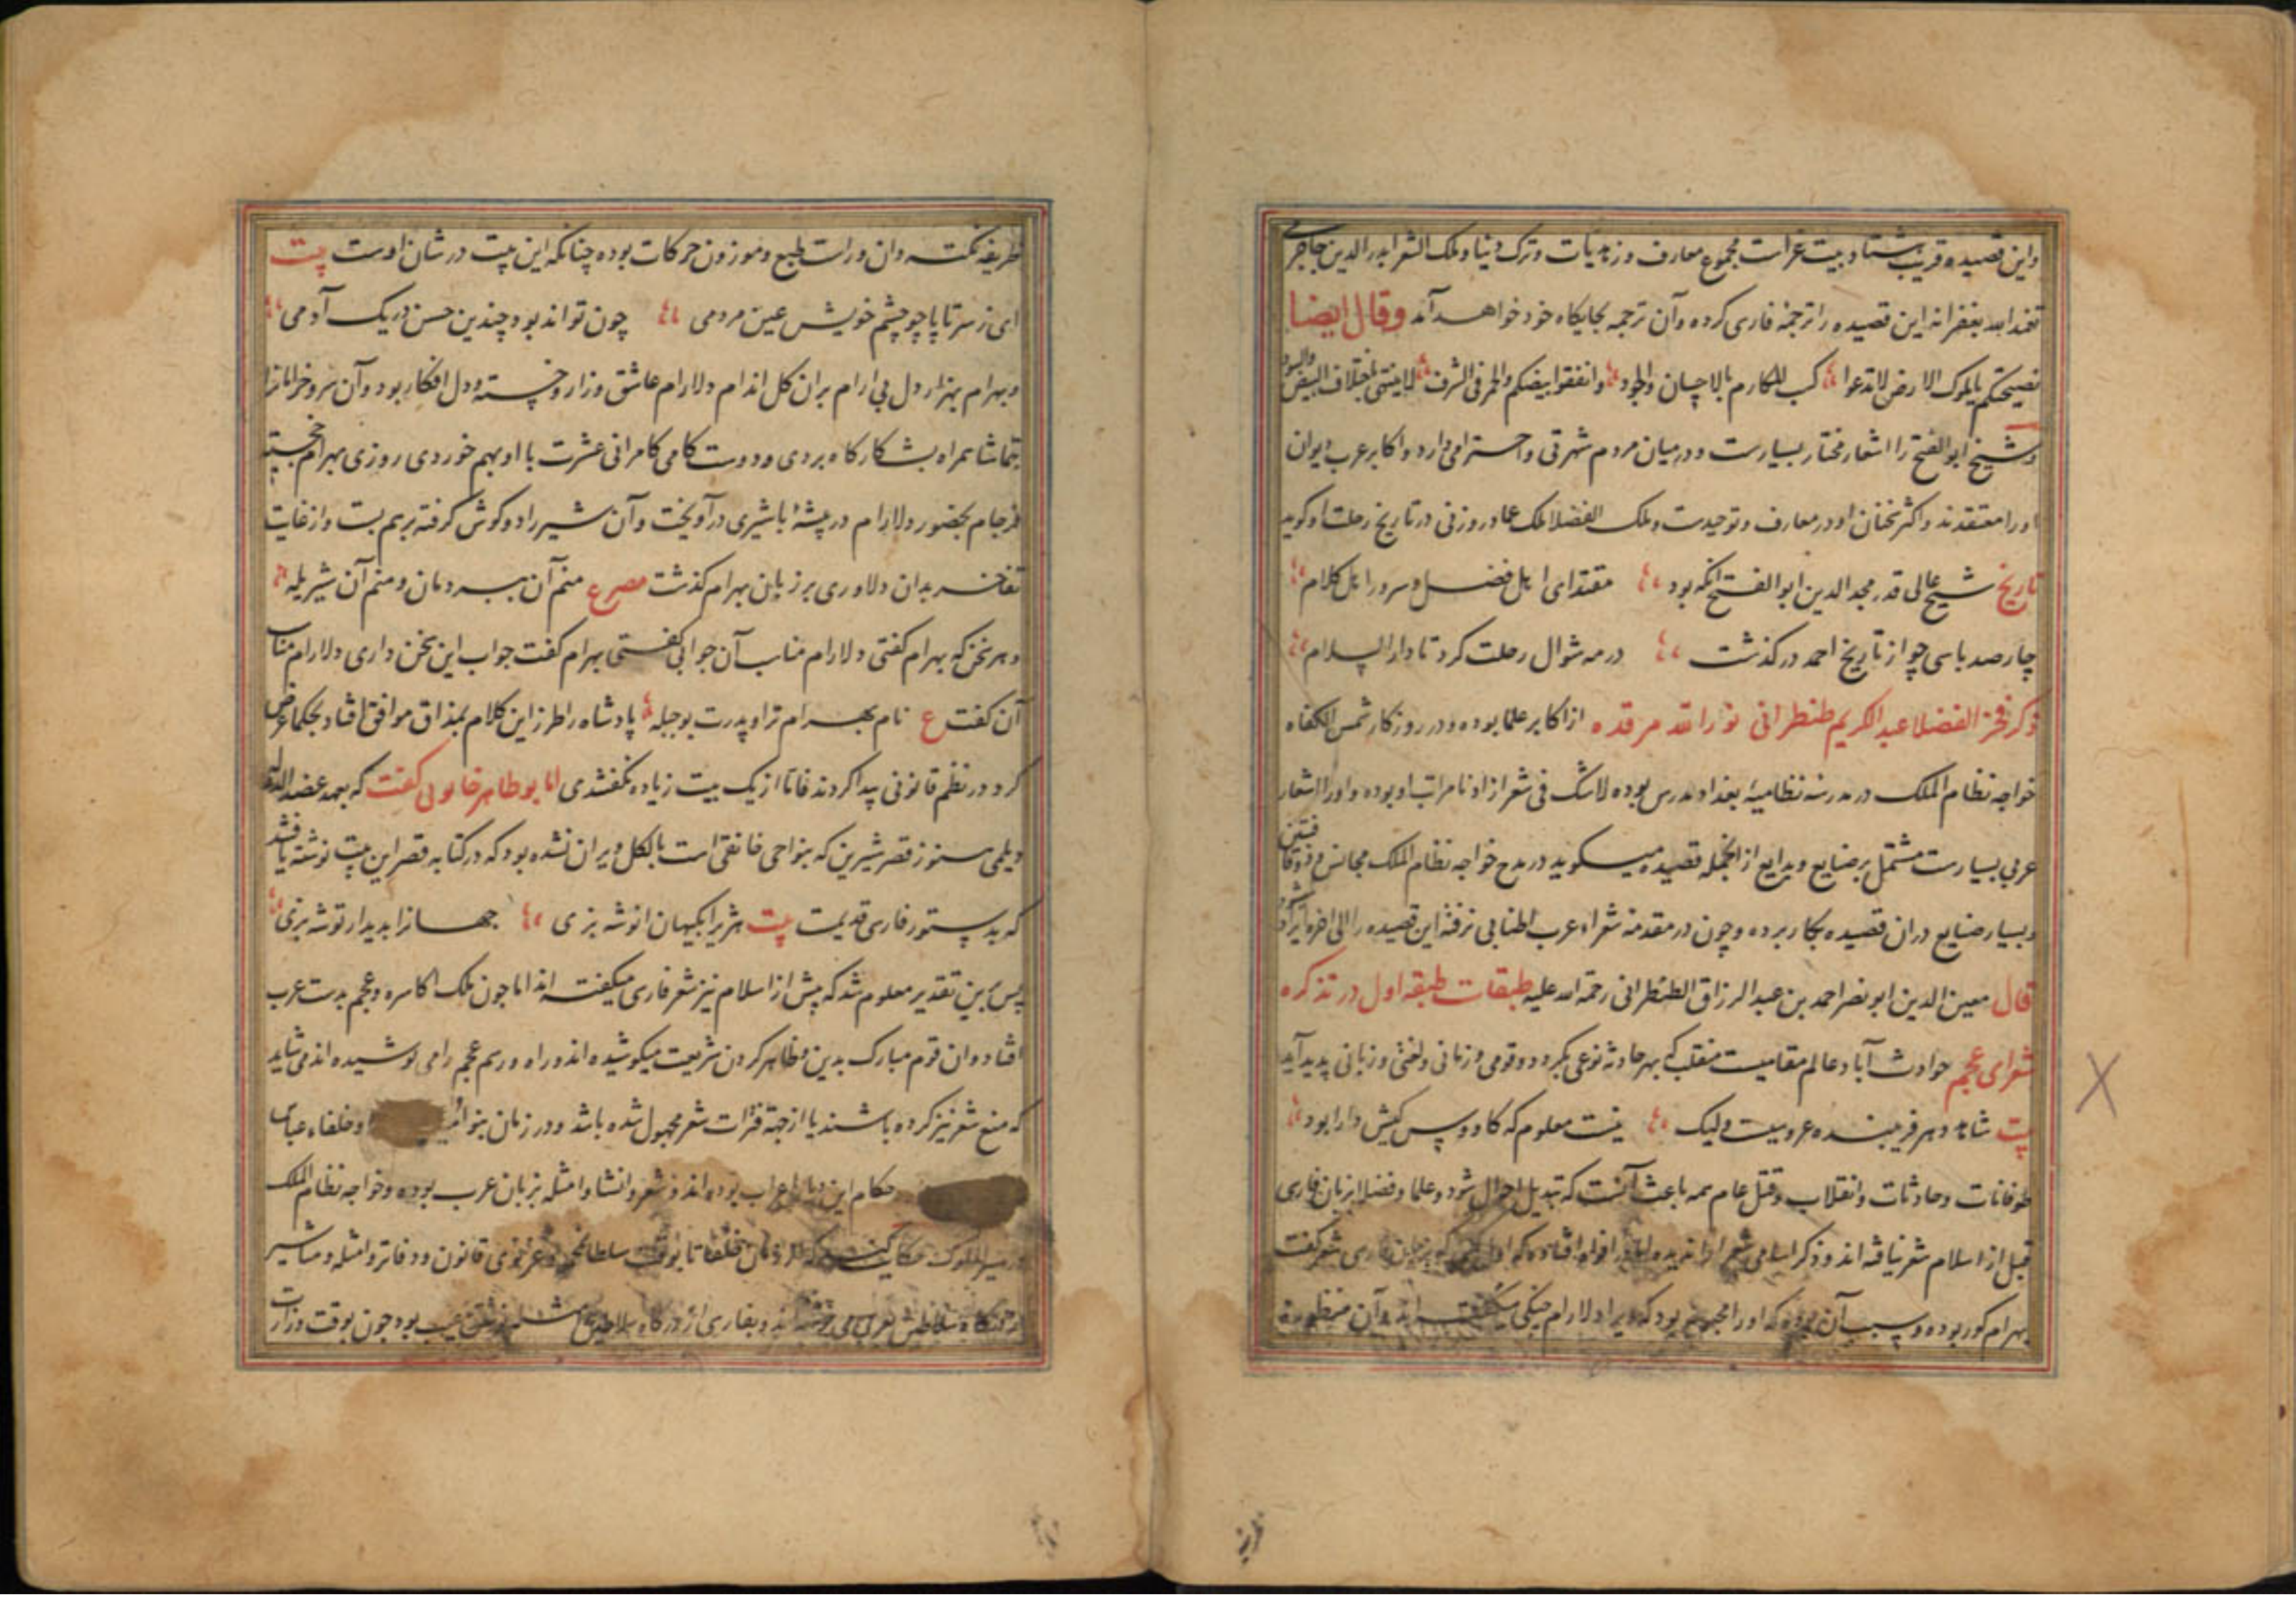 واین قصیده قریب هشتاد بیت غراست مجموع معارف و زهدیات و ترک دنیا و ملک الشعرا بدر الدین جاجرمی
تغمد الله بغفرانه این قصیده را ترجمه فارسی کرده و آن ترجمه بجایگاه خود خواهد آمد وقال ایضا
نصیحتکم یا ملوک الارض لا تدعوا کسب المکارم بالاحسان والجود وانفقوا بیضکم والحمر فی الشرف لا ینتهی باختلاف البیض والسود
و شیخ ابو الفتح را اشعار مختار بسیارست و در میان مردم شهرتی و احترامی دارد و اکابر عرب دیوان
او را معتقدند و اکثر سخنان او در معارف و توحیدست و ملک الفضلا ملک عماد زوزنی در تاریخ رحلت او گوید
تاریخ شیخ عالی قدر مجد الدین ابو الفتح آنکه بود مقتدای اهل فضل و سرور اهل کلام
چارصد با سی چو از تاریخ احمد درگذشت در مه شوال رحلت کرد تا دار السلام
ذکر فخر الفضلا عبد الکریم طنطرانی نور الله مرقده از اکابر علما بوده و در روزگار شمس الکفاه
خواجه نظام الملک در مدرسه نظامیه بغداد مدرس بوده لاشک فی شعر ازاد نامراتب او بوده و او را اشعار
عربی بسیارست مشتمل بر صنایع و بدایع از انجمله قصیده میگوید در مدح خواجه نظام الملک مجانس ذوقافیتین
و بسیار صنایع دران قصیده بکار برده و چون در مقدمه شعراء عرب اطنابی نرفته این قصیده را الی اخره ایراد
قال معین الدین ابو نصر احمد بن عبد الرزاق الطنطرانی رحمة الله علیه طبقات طبقه اول در تذکره
شعرای عجم حوادث آباد عالم مقامیست منقلب که بهر حادثه نوعی بگردد و قومی و زمانی و لغتی و زبانی پدید آید
بیت شاهد دهر فریبنده عروسیست ولیک نیست معلوم که کاووس کیش دارا بود
طوفانات و حادثات و انقلاب و قتل عام همه باعث آنست که تبدیل احوال شود و علما و فضلا بزبان فارسی
قبل از اسلام شعر نیافته اند و ذکر اسامی شعرا را ندیده اما در افواه افتاده که اول کسی که بزبان فارسی شعر گفت
بهرام گور بوده و سبب آن بوده که او را محبوبه بود که ویرا دلارام چنگی میگفته اند و آن منظوره
ظریفه نکته دان و راست طبع و موزون حرکات بوده چنانکه این بیت در شان اوست بیت
ای ز سر تا پا چو چشم خویش عین مردمی چون تواند بود چندین حسن در یک آدمی
و بهرام بهزار دل بی ارام بران گل اندام دلارام عاشق و زار و خسته و دل افکار بود و آن سرو خرامانرا
بتماشا همراه بشکارگاه بردی و دوستکامی کامرانی عشرت با او بهم خوردی روزی بهرام خجسته
فرجام بحضور دلارام در بیشۀ با شیری درآویخت و آن شیر را دو گوش گرفته برهم بست و از غایت
تفاخر بدان دلاوری بر زبان بهرام گذشت مصرع منم آن ببر دمان و منم آن شیر یله
و هر سخن که بهرام گفتی دلارام مناسب آن جوابی گفتی بهرام گفت جواب این سخن داری دلارام مناسب
آن گفت ع نام بهرام ترا و پدرت بوجبله پادشاه را طرز این کلام بمذاق موافق افتاد بحکما عرض
کرد و در نظم قانونی پیدا کردند فاما از یک بیت زیاده نگفتندی اما بو طاهر خاتونی گفت که بعهد عضد الدوله
دیلمی هنوز قصر شیرین که بنواحی خانقین است بالکل ویران نشده بود که در کتابه قصر این بیت نوشته یافتند
که بدستور فارسی قدیمست بیت هژبرا بگیهان انوشه بزی جهانرا بدیدار توشه بزی
پس برین تقدیر معلوم شد که پیش از اسلام نیز شعر فارسی میگفته اند اما چون ملک اکاسره و عجم بدست عرب
افتاد و ان قوم مبارک بدین و ظاهر کردن شریعت میکوشیده اند و راه و رسم عجم را می پوشیده اند می شاید
که منع شعر نیز کرده باشند یا از جهة فترات شعر مجهول شده باشد و در زمان بنو امیه و خلفاء عباس
حکام این دیار اعراب بوده اند و شعر و انشا و امثله بزبان عرب بوده و خواجه نظام الملک
در سیر الملوک حکایت کند که از زمان خلفا تا بوقت سلطان محمود غزنوی قانون و دفاتر و امثله و مناشیر
از درگاه سلاطین بعربی می نوشته اند و بفارسی از درگاه سلاطین امثله نوشتن عیب بود چون بوقت وزارت